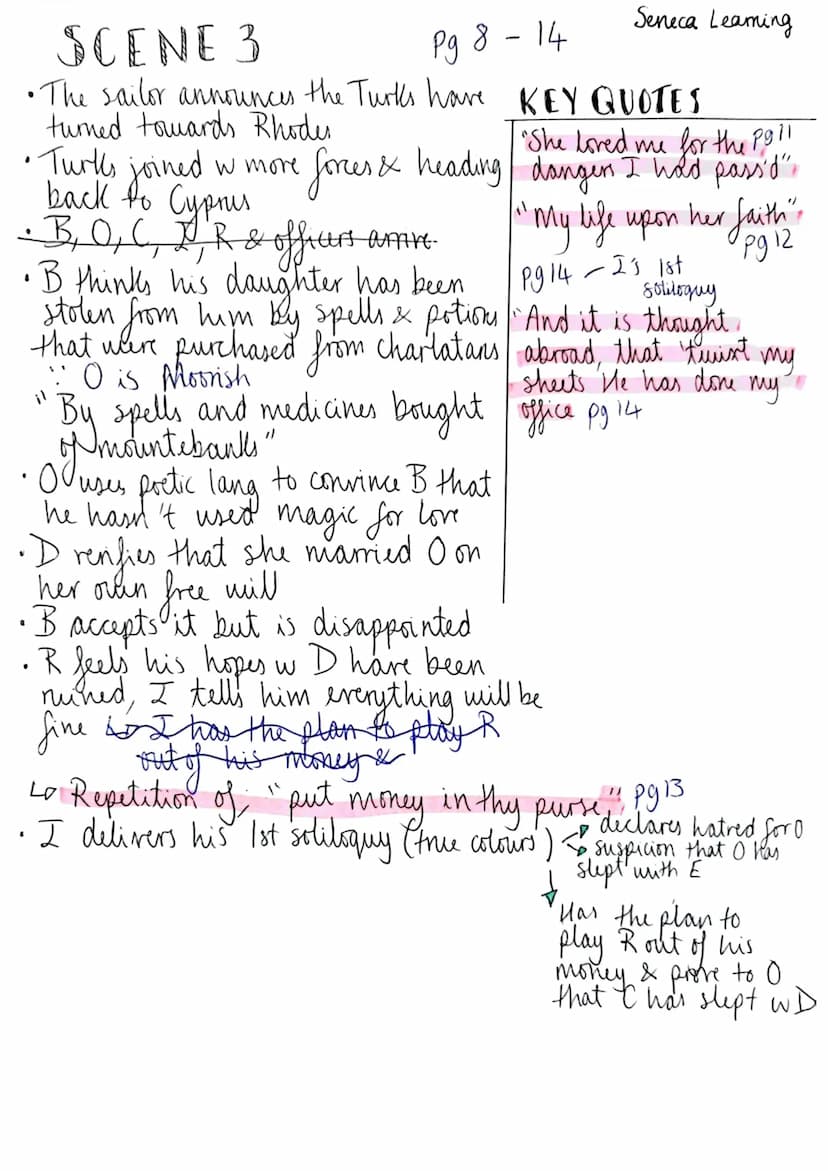 Seneca Learning
SCENE 3
Pg 8 - 14
• The sailor announces the Turks have
turned towards Rhodes
• Turks joined w more forces & heading
back to Cyprus
• B, O, C, I, R & officers arrive.
• B thinks his daughter has been
stolen from him by spells & potions
that were purchased from charlatans
∵ O is Moorish
"By spells and medicines bought
of mountebanks"
• O uses poetic lang to convince B that
he hasn't used magic for love
• D verifies that she married O on
her own free will
• B accepts it but is disappointed
• R feels his hopes w D have been
ruined, I tells him everything will be
fine ↳ I has the plan to play R
out of his money &
↳ Repetition of, "put money in thy purse" pg 13
• I delivers his 1st soliloquy (true colours)
declares hatred for O
suspicion that O has
slept with E
Has the plan to
play R out of his
money & prove to O
that C has slept w D
KEY QUOTES
"She loved me for the pg 11
dangers I had pass'd"
"My life upon her faith"
pg 12
pg 14 - I's 1st
soliloquy
"And it is thought
abroad, that 'twixt my
sheets He has done my
office pg 14